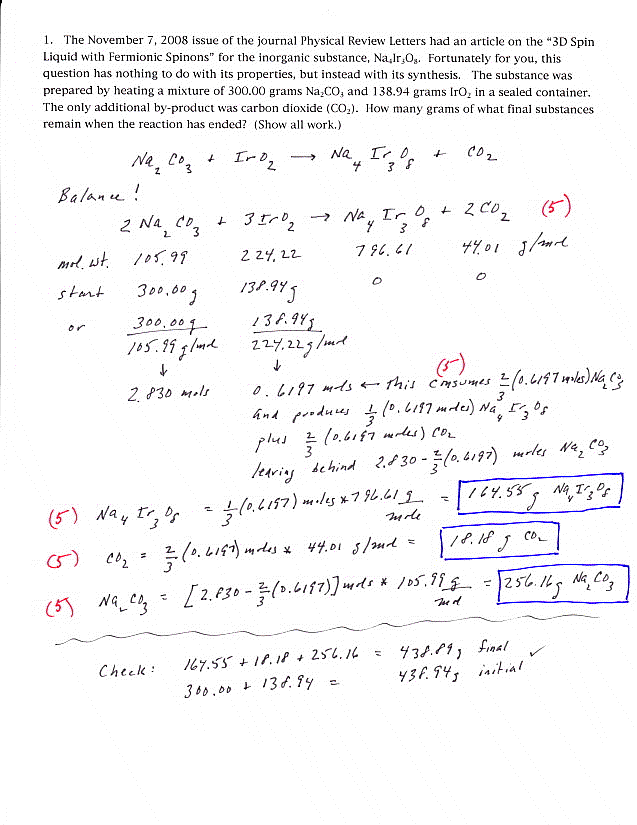 1. The November 7, 2008 issue of the journal Physical Review Letters had an article on the "3D Spin
Liquid with Fermionic Spinons" for the inorganic substance, Na₄Ir₃O₈. Fortunately for you, this
question has nothing to do with its properties, but instead with its synthesis. The substance was
prepared by heating a mixture of 300.00 grams Na₂CO₃ and 138.94 grams IrO₂ in a sealed container.
The only additional by-product was carbon dioxide (CO₂). How many grams of what final substances
remain when the reaction has ended? (Show all work.)
Na₂CO₃ + IrO₂ → Na₄Ir₃O₈ + CO₂
Balance!
2 Na₂CO₃ + 3 IrO₂ → Na₄Ir₃O₈ + 2 CO₂ (5)
mol. wt. 105.99 224.22 796.61 44.01 g/mol
start 300.00 g 138.94 g 0 0
or 300.00 g / 105.99 g/mol 138.94 g / 224.22 g/mol
↓ ↓ (5)
2.830 mols 0.6197 mols ← this consumes 2/3 (0.6197 moles) Na₂CO₃
and produces 1/3 (0.6197 moles) Na₄Ir₃O₈
plus 2/3 (0.6197 moles) CO₂
leaving behind 2.830 - 2/3 (0.6197) moles Na₂CO₃
(5) Na₄Ir₃O₈ = 1/3 (0.6197) moles * 796.61 g/mole = 164.55 g Na₄Ir₃O₈
(5) CO₂ = 2/3 (0.6197) moles * 44.01 g/mol = 18.18 g CO₂
(5) Na₂CO₃ = [2.830 - 2/3 (0.6197)] mols * 105.99 g/mol = 256.16 g Na₂CO₃
Check: 164.55 + 18.18 + 256.16 = 438.89 g final ✓
300.00 + 138.94 = 438.94 g initial